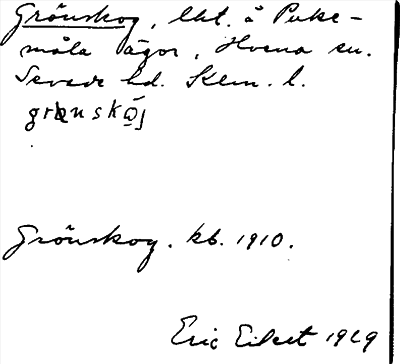 Grönskog, lht. å Puke-
måla ägor, Hvena sn.
Sevede hd. Klm. l.
grönskoj
Grönskog. kb. 1910.
Eric Eilert 1929